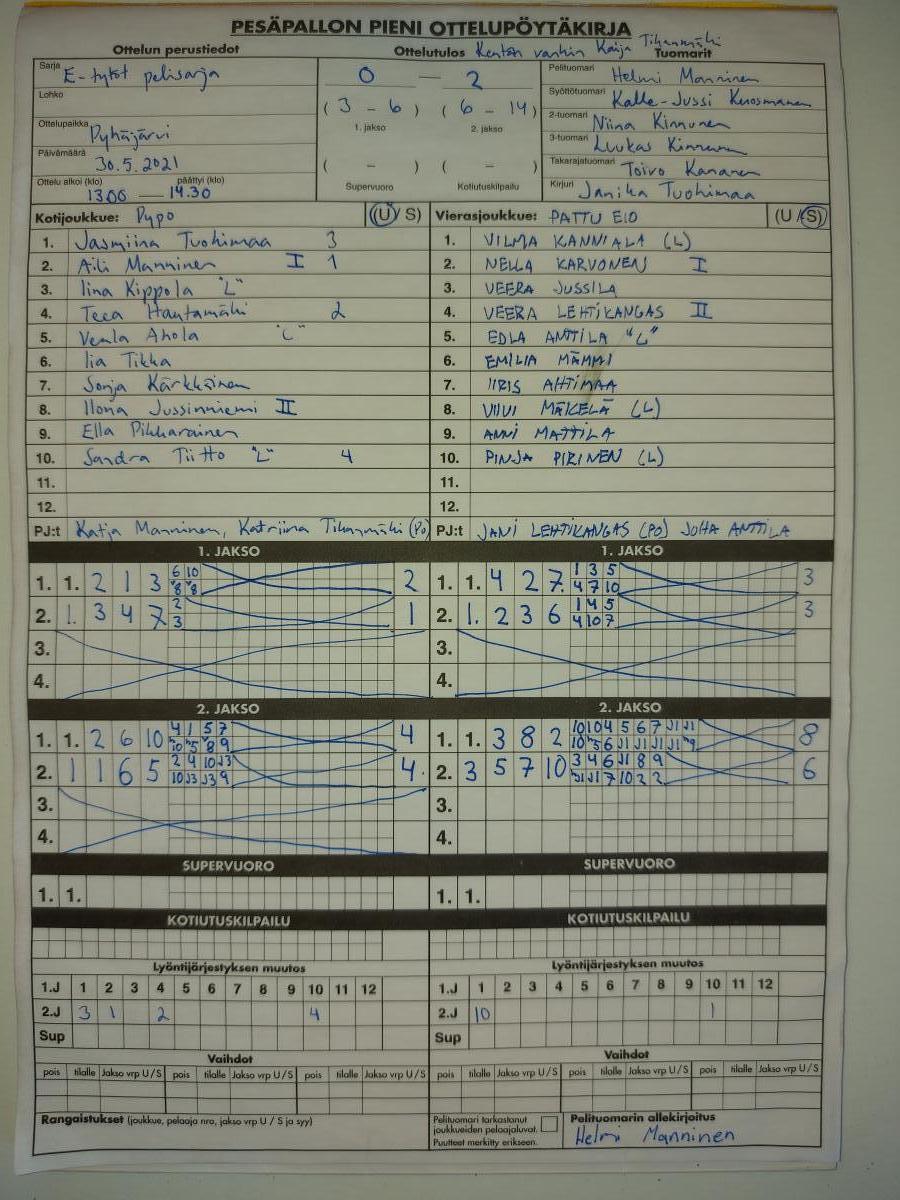 PESÄPALLON PIENI OTTELUPÖYTÄKIRJA
Ottelun perustiedot
Ottelutulos Kentän vanhin Kaija Tihanmäki
Tuomarit
Sarja E-tytöt pelisarja
0 — 2
Pelituomari Helmi Manninen
Lohko
Syöttötuomari Kalle-Jussi Kuosmanen
( 3 - 6 ) ( 6 - 14 )
1. jakso 2. jakso
Ottelupaikka Pyhäjärvi
2-tuomari Niina Kinnunen
Päivämäärä 30.5.2021
3-tuomari Luukas Kinnunen
( - ) ( - )
Takarajatuomari Toivo Kananen
Ottelu alkoi (klo) päättyi (klo)
1300 — 14.30
Supervuoro Kotiutuskilpailu
Kirjuri Janika Tuohimaa
Kotijoukkue: Pypo (U/ S)
1. Jasmiina Tuohimaa 3
2. Aili Manninen I 1
3. Iina Kippola "L"
4. Teea Hautamäki 2
5. Venla Ahola "L"
6. Iia Tikka
7. Sonja Kärkkäinen
8. Ilona Jussinniemi II
9. Ella Pikkarainen
10. Sandra Tiitto "L" 4
11.
12.
PJ:t Katja Manninen, Katriina Tihanmäki (Po)
Vierasjoukkue: PATTU E10 (U / S)
1. VILMA KANNIALA (L)
2. NELLA KARVONEN I
3. VEERA JUSSILA
4. VEERA LEHTIKANGAS II
5. EDLA ANTTILA "L"
6. EMILIA MÄMMI
7. IIRIS AHTIMAA
8. VIIVI MÄKELÄ (L)
9. ANNI MATTILA
10. PINJA PIRINEN (L)
11.
12.
PJ:t JANI LEHTIKANGAS (PO) JUHA ANTTILA
1. JAKSO
1. 1. 2 1 3 6 10 2
8 8
2. 1. 3 4 7 2 1
3
3.
4.
1. JAKSO
1. 1. 4 2 7. 1 3 5 3
4 7 10
2. 1. 2 3 6 1 4 5 3
4 10 7
3.
4.
2. JAKSO
1. 1. 2 6 10 4 1 5 7 4
10 5 8 9
2. 1 1 6 5 2 4 10 J3 4.
10 J3 J3 9
3.
4.
2. JAKSO
1. 1. 3 8 2 10 10 4 5 6 7 J1 J1 8
10 5 6 J1 J1 J1 J1 9
2. 3 5 7 10 3 4 6 J1 8 9 6
J1 J1 7 10 2 2
3.
4.
SUPERVUORO
1. 1.
SUPERVUORO
1. 1.
KOTIUTUSKILPAILU
KOTIUTUSKILPAILU
Lyöntijärjestyksen muutos
1.J 1 2 3 4 5 6 7 8 9 10 11 12
2.J 3 1 2 4
Sup
Lyöntijärjestyksen muutos
1.J 1 2 3 4 5 6 7 8 9 10 11 12
2.J 10 1
Sup
Vaihdot
pois tilalle Jakso vrp U / S pois tilalle Jakso vrp U / S pois tilalle Jakso vrp U / S
Vaihdot
pois tilalle Jakso vrp U / S pois tilalle Jakso vrp U / S pois tilalle Jakso vrp U / S
Rangaistukset (joukkue, pelaaja nro, jakso vrp U / S ja syy)
Pelituomari tarkastanut
joukkueiden pelaajaluvat.
Puutteet merkitty erikseen.
Pelituomarin allekirjoitus
Helmi Manninen